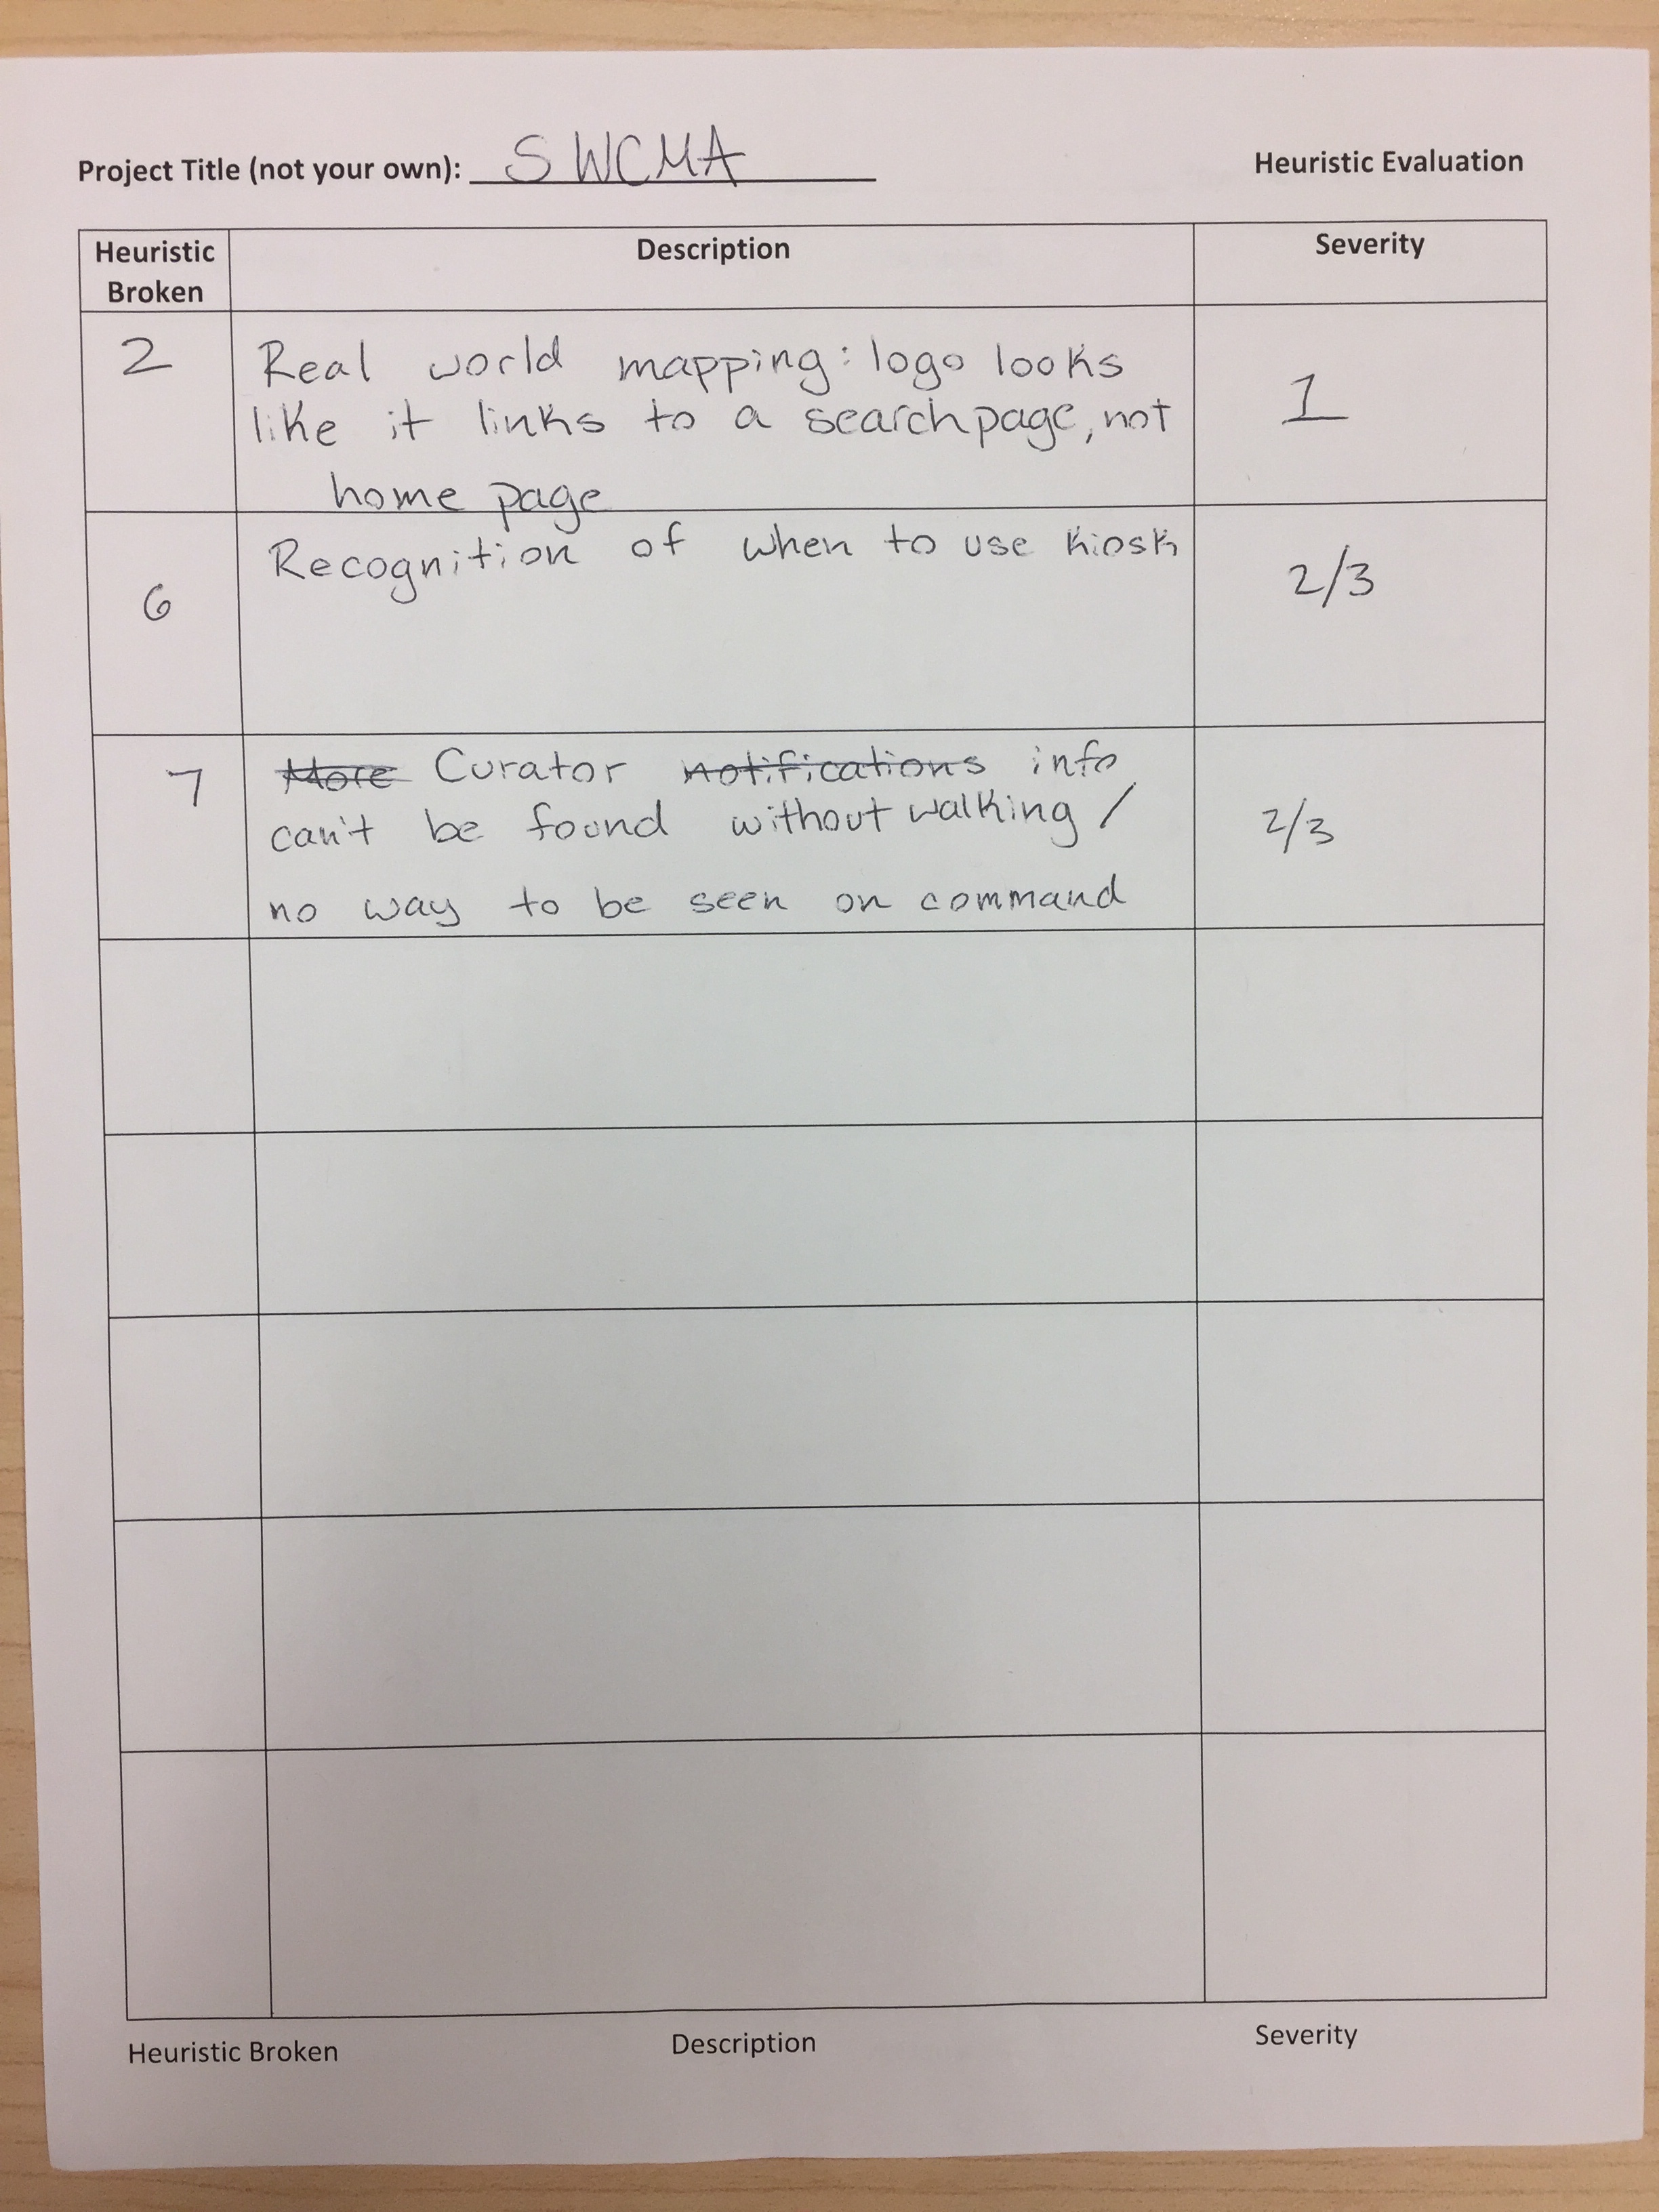 Project Title (not your own): SWCMA
Heuristic Evaluation
Heuristic Broken
Description
Severity
2
Real world mapping: logo looks
like it links to a searchpage, not
home page
1
6
Recognition of when to use kiosk
2/3
7
More Curator notifications info
can't be found without walking /
no way to be seen on command
2/3
Heuristic Broken
Description
Severity